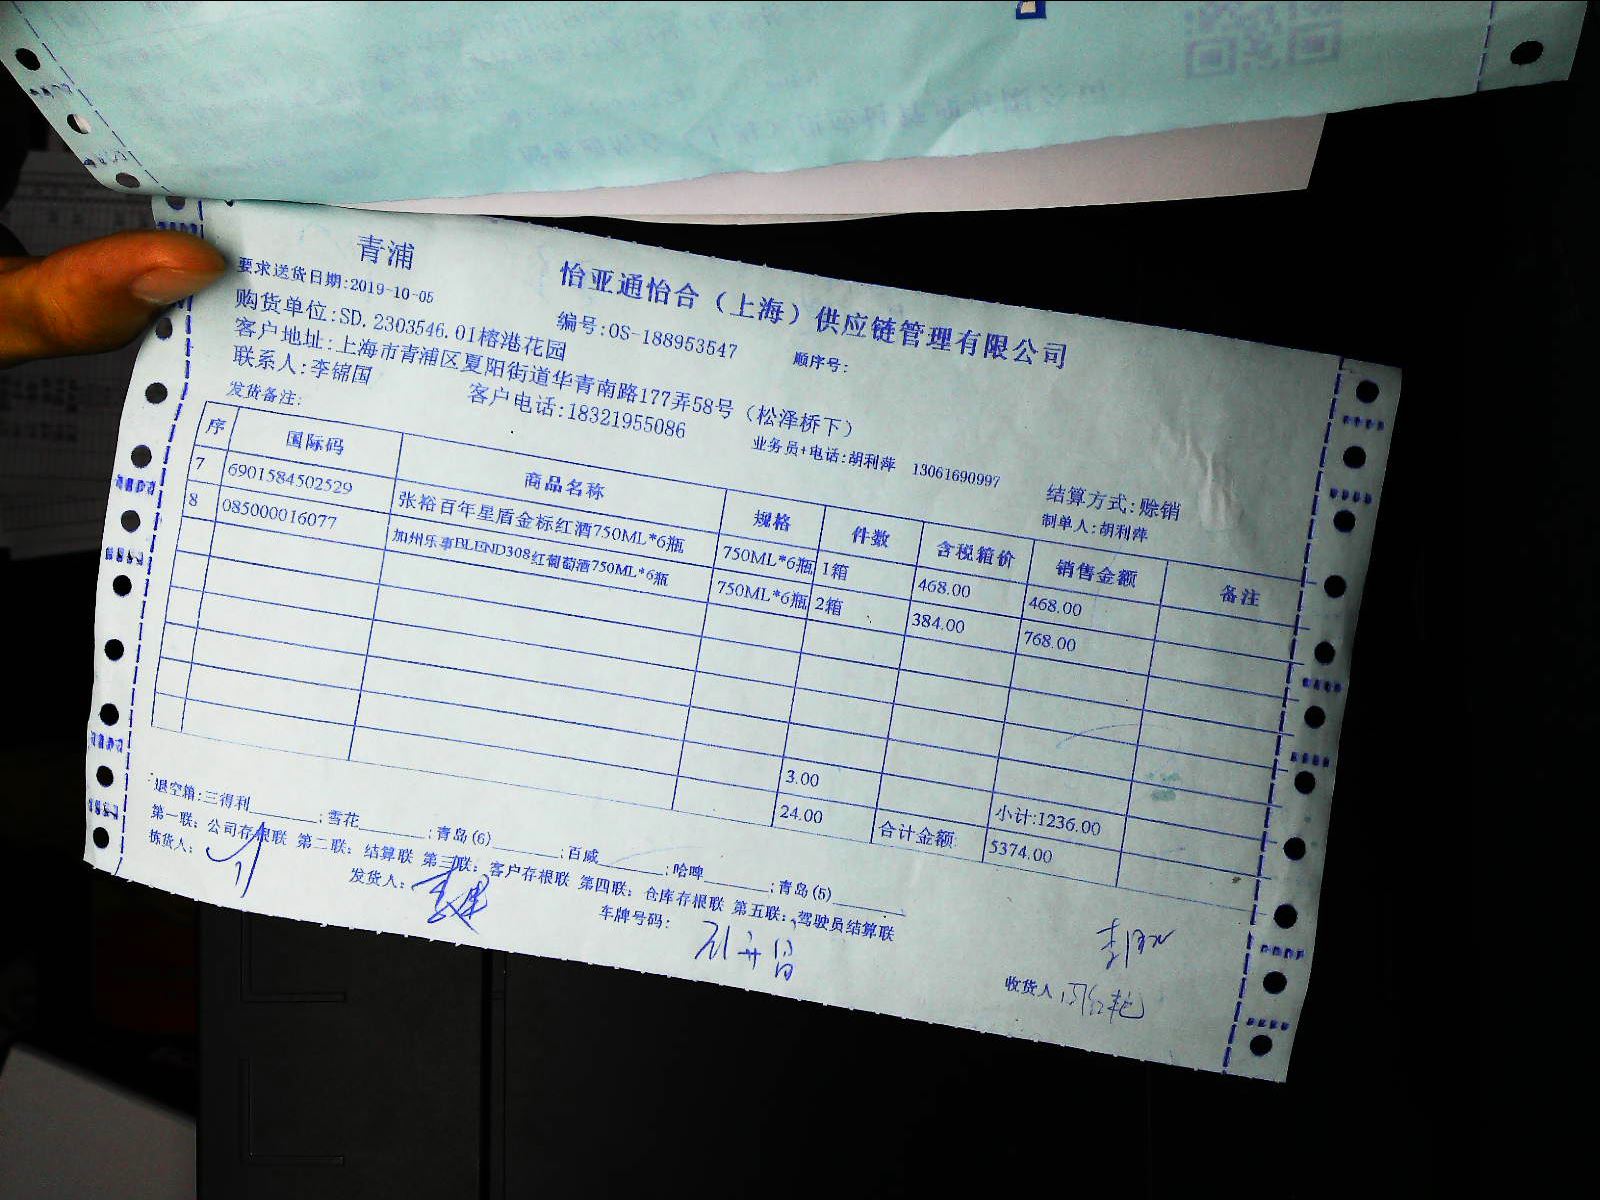 青浦
怡亚通怡合（上海）供应链管理有限公司
要求送货日期:2019-10-05
编号:OS-188953547
顺序号:
购货单位:SD.2303546.01榕港花园
客户地址:上海市青浦区夏阳街道华青南路177弄58号（松泽桥下）
联系人:李锦国
客户电话:18321955086
业务员+电话:胡利萍 13061690997
结算方式:赊销
发货备注:
制单人:胡利萍
序 国际码 商品名称 规格 件数 含税箱价 销售金额 备注
7 6901584502529 张裕百年星盾金标红酒750ML*6瓶 750ML*6瓶 1箱 468.00 468.00
8 085000016077 加州乐事BLEND308红葡萄酒750ML*6瓶 750ML*6瓶 2箱 384.00 768.00
3.00 小计:1236.00
24.00 合计金额: 5374.00
退空箱:三得利______;雪花______;青岛(6)______;百威______;哈啤______;青岛(5)______
第一联：公司存根联 第二联：结算联 第三联：客户存根联 第四联：仓库存根联 第五联：驾驶员结算联
拣货人：
发货人：
车牌号码：
收货人